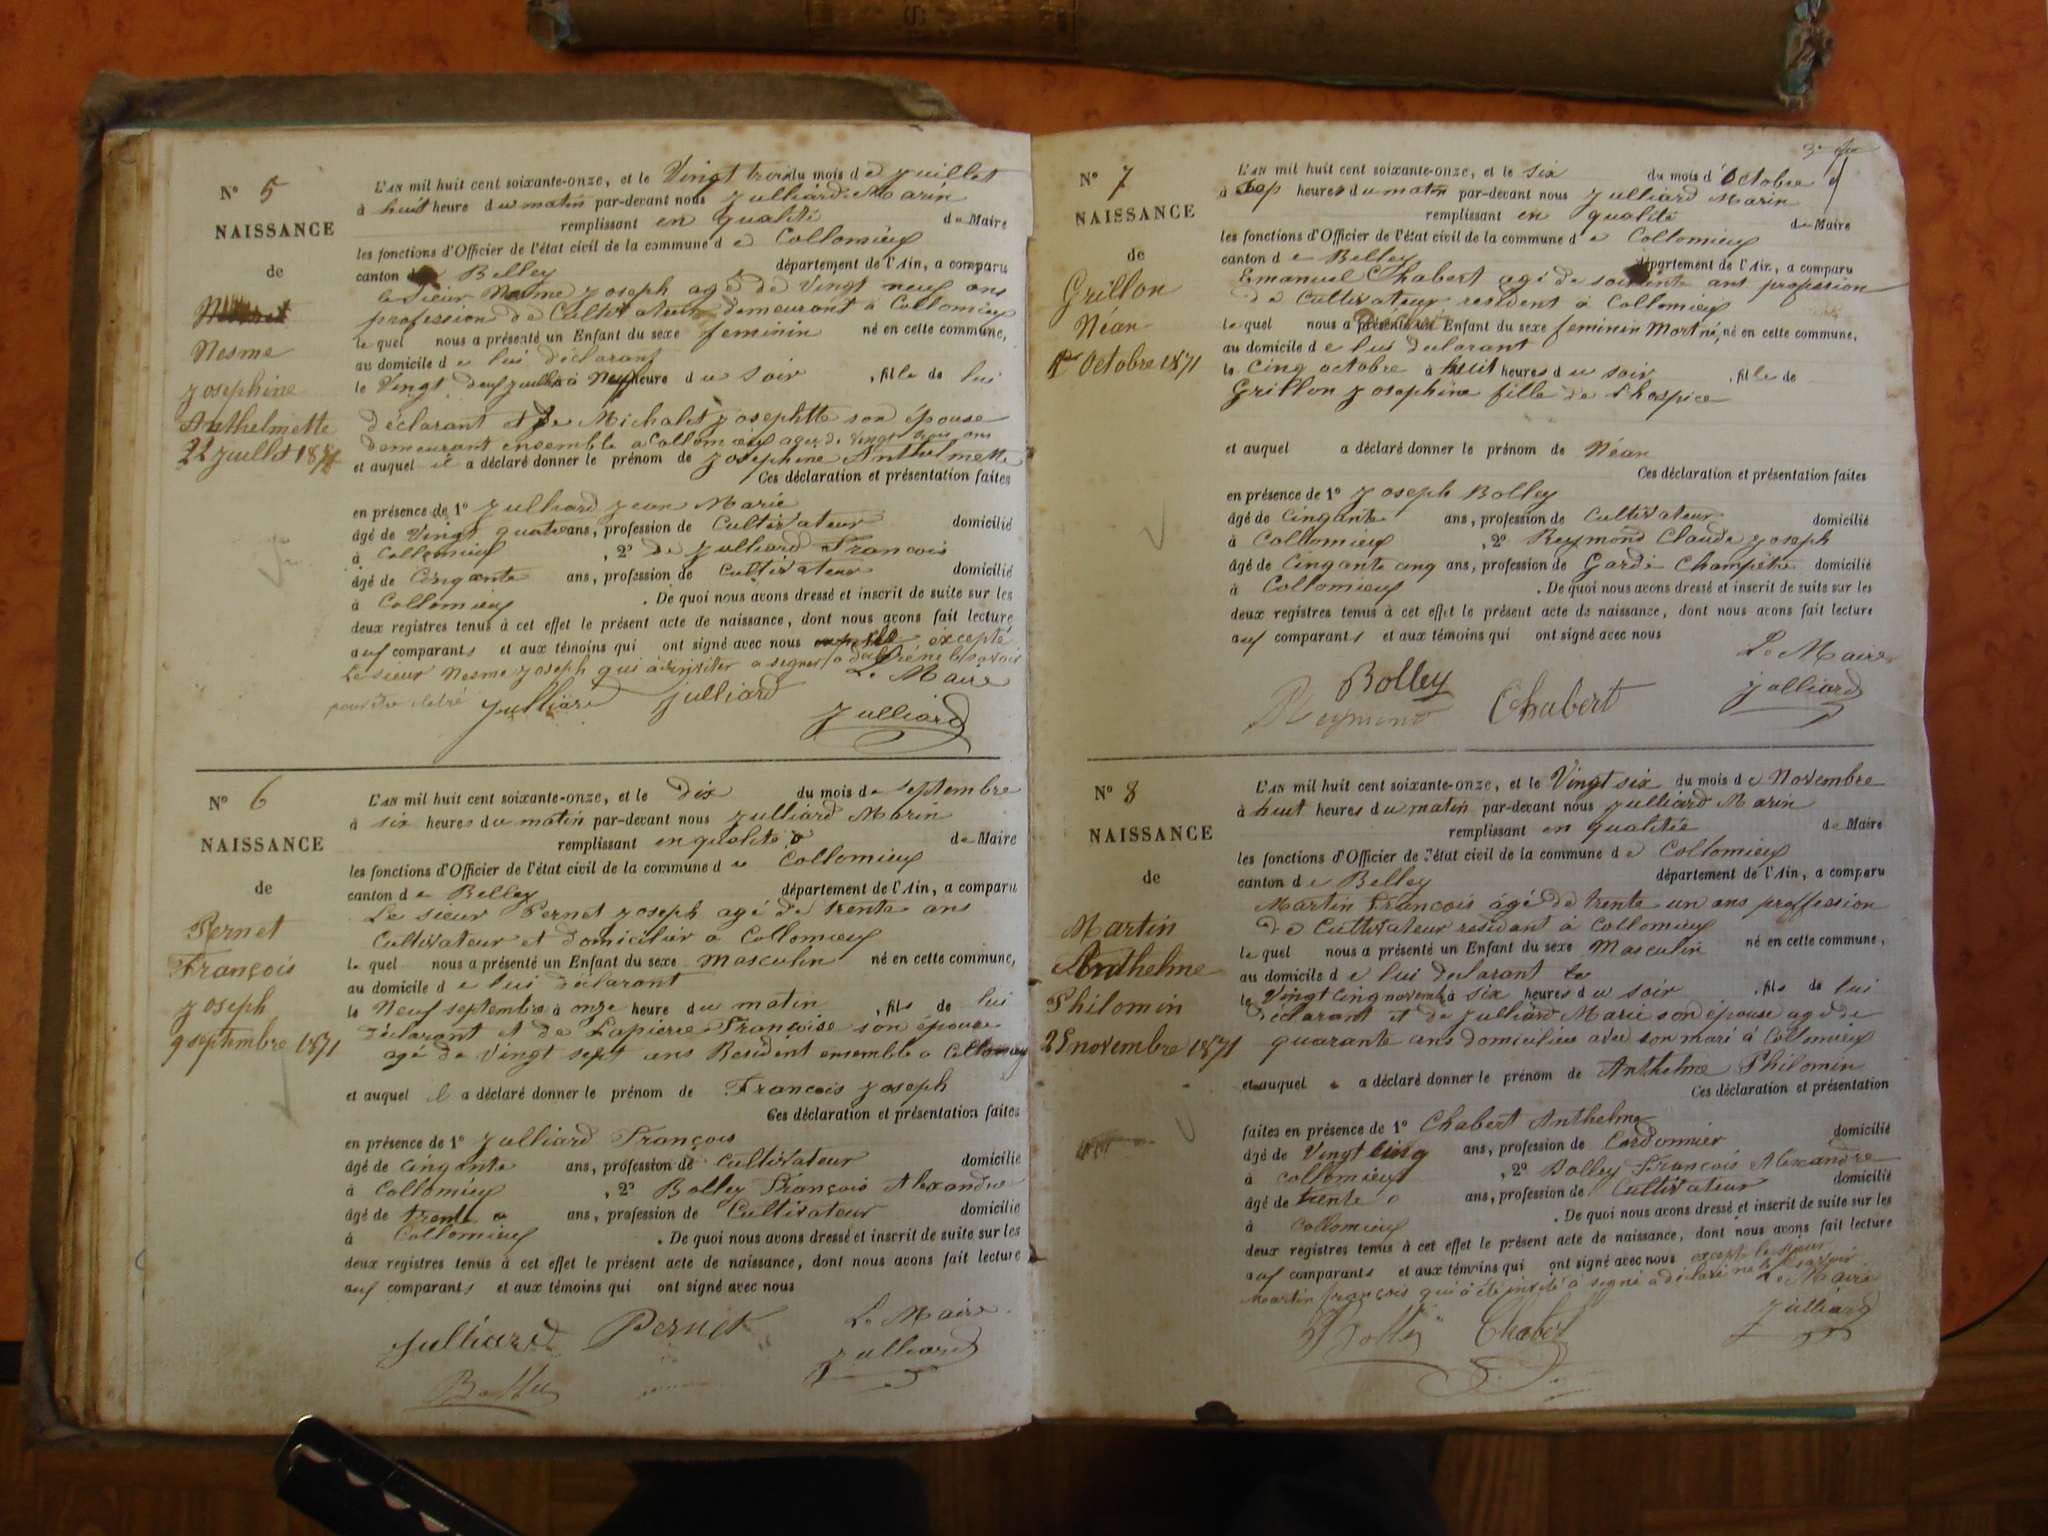 N° 5
NAISSANCE
de
Nesme
Josephine
Anthelmette
22 Juillet 1871
L'AN mil huit cent soixante-onze, et le Vingt trois du mois de Juillet
à huit heure du matin par-devant nous Julliard Marin
remplissant en qualité de Maire
les fonctions d'Officier de l'état civil de la commune de Collomieu
canton de Belley département de l'Ain, a comparu
le sieur Nesme Joseph agé de Vingt neuf ans
profession de Cultivateur demeurant à Collomieu
le quel nous a présenté un Enfant du sexe feminin né en cette commune,
au domicile de lui déclarant
le Vingt deux Juillet à Neuf heure du Soir, fille de lui
déclarant et de Michalet Josephtte son épouse
demeurant ensemble a Collomieu agée de vingt ans
et auquel il a déclaré donner le prénom de Josephine Anthelmette
Ces déclaration et présentation faites
en présence de 1° Julliard Jean Marie
âgé de Vingt quatre ans, profession de Cultivateur domicilié
à Collomieu, 2° de Julliard Francois
âgé de Cinqante ans, profession de Cultivateur domicilié
à Collomieu. De quoi nous avons dressé et inscrit de suite sur les
deux registres tenus à cet effet le présent acte de naissance, dont nous avons fait lecture
aux comparants et aux témoins qui ont signé avec nous excepté
Le sieur Nesme Joseph qui a signer a déclaré ne le savoir
Le Maire
Julliard Julliard
Julliard
N° 6
NAISSANCE
de
Pernet
François
Joseph
9 septembre 1871
L'AN mil huit cent soixante-onze, et le dix du mois de septembre
à six heures du matin par-devant nous Julliard Marin
remplissant en qualité de Maire
les fonctions d'Officier de l'état civil de la commune de Collomieu
canton de Belley département de l'Ain, a comparu
Le sieur Pernet Joseph agé de trente ans
Cultivateur et domicilier a Collomieu
le quel nous a présenté un Enfant du sexe Masculin né en cette commune,
au domicile de lui déclarant
le Neuf septembre à onze heure du matin, fils de lui
déclarant et de Lapierre Francoise son épouse
agé de Vingt sept ans Resident ensemble a Collomieu
et auquel il a déclaré donner le prénom de Francois Joseph
Ces déclaration et présentation faites
en présence de 1° Julliard François
âgé de cinqante ans, profession de Cultivateur domicilié
à Collomieu, 2° Bolley François Alexandre
âgé de trente ans, profession de Cultivateur domicilié
à Collomieu. De quoi nous avons dressé et inscrit de suite sur les
deux registres tenus à cet effet le présent acte de naissance, dont nous avons fait lecture
aux comparants et aux témoins qui ont signé avec nous
Le Maire
Julliard Pernet
Julliard
Bolley
N° 7
NAISSANCE
de
Grillon
Néan
Octobre 1871
L'AN mil huit cent soixante-onze, et le six du mois d'Octobre
à sep heures du matin par-devant nous Julliard Marin
remplissant en qualité de Maire
les fonctions d'Officier de l'état civil de la commune de Collomieu
canton de Belley département de l'Ain, a comparu
Emanuel Chabert agé de soixante ans profession
de Cultivateur resident à Collomieu
le quel nous a présenté un Enfant du sexe feminin Mort né, né en cette commune,
au domicile de lui declarant
le Cinq octobre à huit heures du soir, fille de
Grillon Josephine fille de l'hospice
et auquel a déclaré donner le prénom de Néan
Ces déclaration et présentation faites
en présence de 1° Joseph Bolley
âgé de Cinqante ans, profession de Cultivateur domicilié
à Collomieu, 2° Reymond Claude Joseph
âgé de Cinqante cinq ans, profession de Garde Champêtre domicilié
à Collomieu. De quoi nous avons dressé et inscrit de suite sur les
deux registres tenus à cet effet le présent acte de naissance, dont nous avons fait lecture
aux comparants et aux témoins qui ont signé avec nous
Le Maire
Bolley
Reymond Chabert Julliard
N° 8
NAISSANCE
de
Martin
Anthelme
Philomin
25 novembre 1871
L'AN mil huit cent soixante-onze, et le Vingt six du mois de Novembre
à huit heures du matin par-devant nous Julliard Marin
remplissant en qualitée de Maire
les fonctions d'Officier de l'état civil de la commune de Collomieu
canton de Belley département de l'Ain, a comparu
Martin François âgé de trente un ans proffession
de Cultivateur residant à Collomieu
le quel nous a présenté un Enfant du sexe Masculin né en cette commune,
au domicile de lui declarant
le Vingt cinq novembre à six heures du soir, fils de lui
déclarant et de Julliard Marie son épouse agé de
quarante ans domiciliée avec son mari à Collomieu
et auquel a déclaré donner le prénom de Anthelme Philomin
Ces déclaration et présentation
faites en présence de 1° Chabert Anthelme
âgé de Vingt cinq ans, profession de Cordonnier domicilié
à Collomieu, 2° Bolley François Alexandre
âgé de trente ans, profession de Cultivateur domicilié
à Collomieu. De quoi nous avons dressé et inscrit de suite sur les
deux registres tenus à cet effet le présent acte de naissance, dont nous avons fait lecture
aux comparants et aux témoins qui ont signé avec nous excepté le sieur
Martin françois qui a été invité a signé a déclaré ne le savoir
Le Maire
Bolley Chabert Julliard